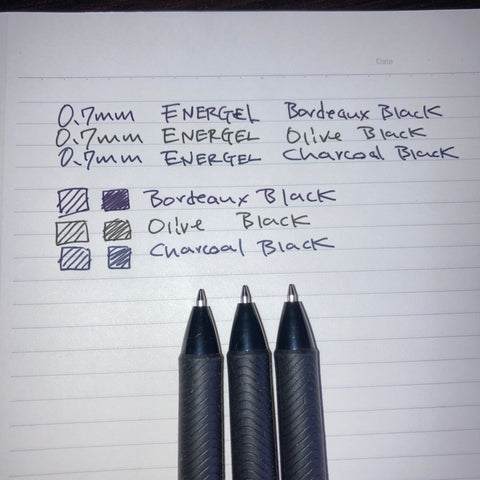 Date
0.7mm ENERGEL Bordeaux Black
0.7mm ENERGEL Olive Black
0.7mm ENERGEL Charcoal Black
Bordeaux Black
Olive Black
Charcoal Black